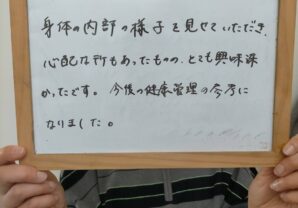 身体の内部の様子を見せていただき、
心配な所もあったものの、とても興味深
かったです。今後の健康管理の参考に
なりました。